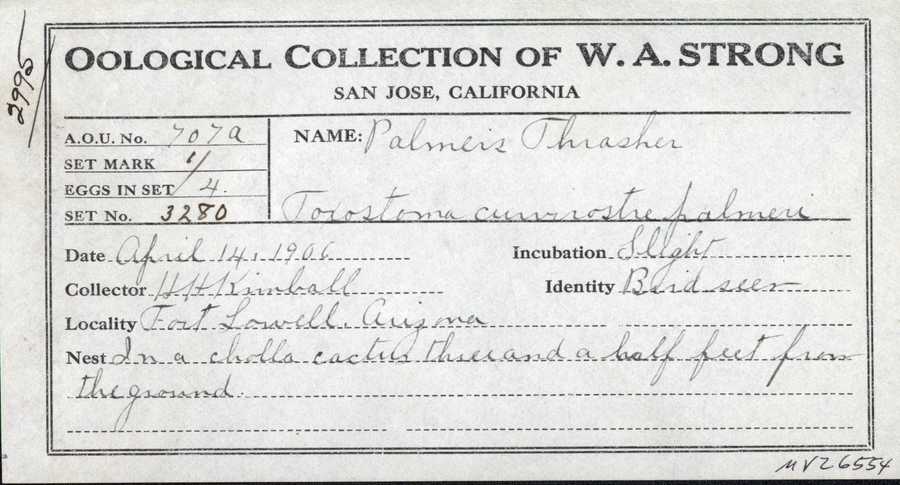 2995
OOLOGICAL COLLECTION OF W. A. STRONG
SAN JOSE, CALIFORNIA
A.O.U. No. 707a
SET MARK 1/
EGGS IN SET 4.
SET No. 3280
NAME: Palmers Thrasher
Toxostoma curvirostre palmeri
Date April 14, 1906
Incubation Slight
Collector HHKimball
Identity Bird seen
Locality Fort Lowell. Arizona
Nest In a cholla cactus three and a half feet from
the ground.
MVZ 6554